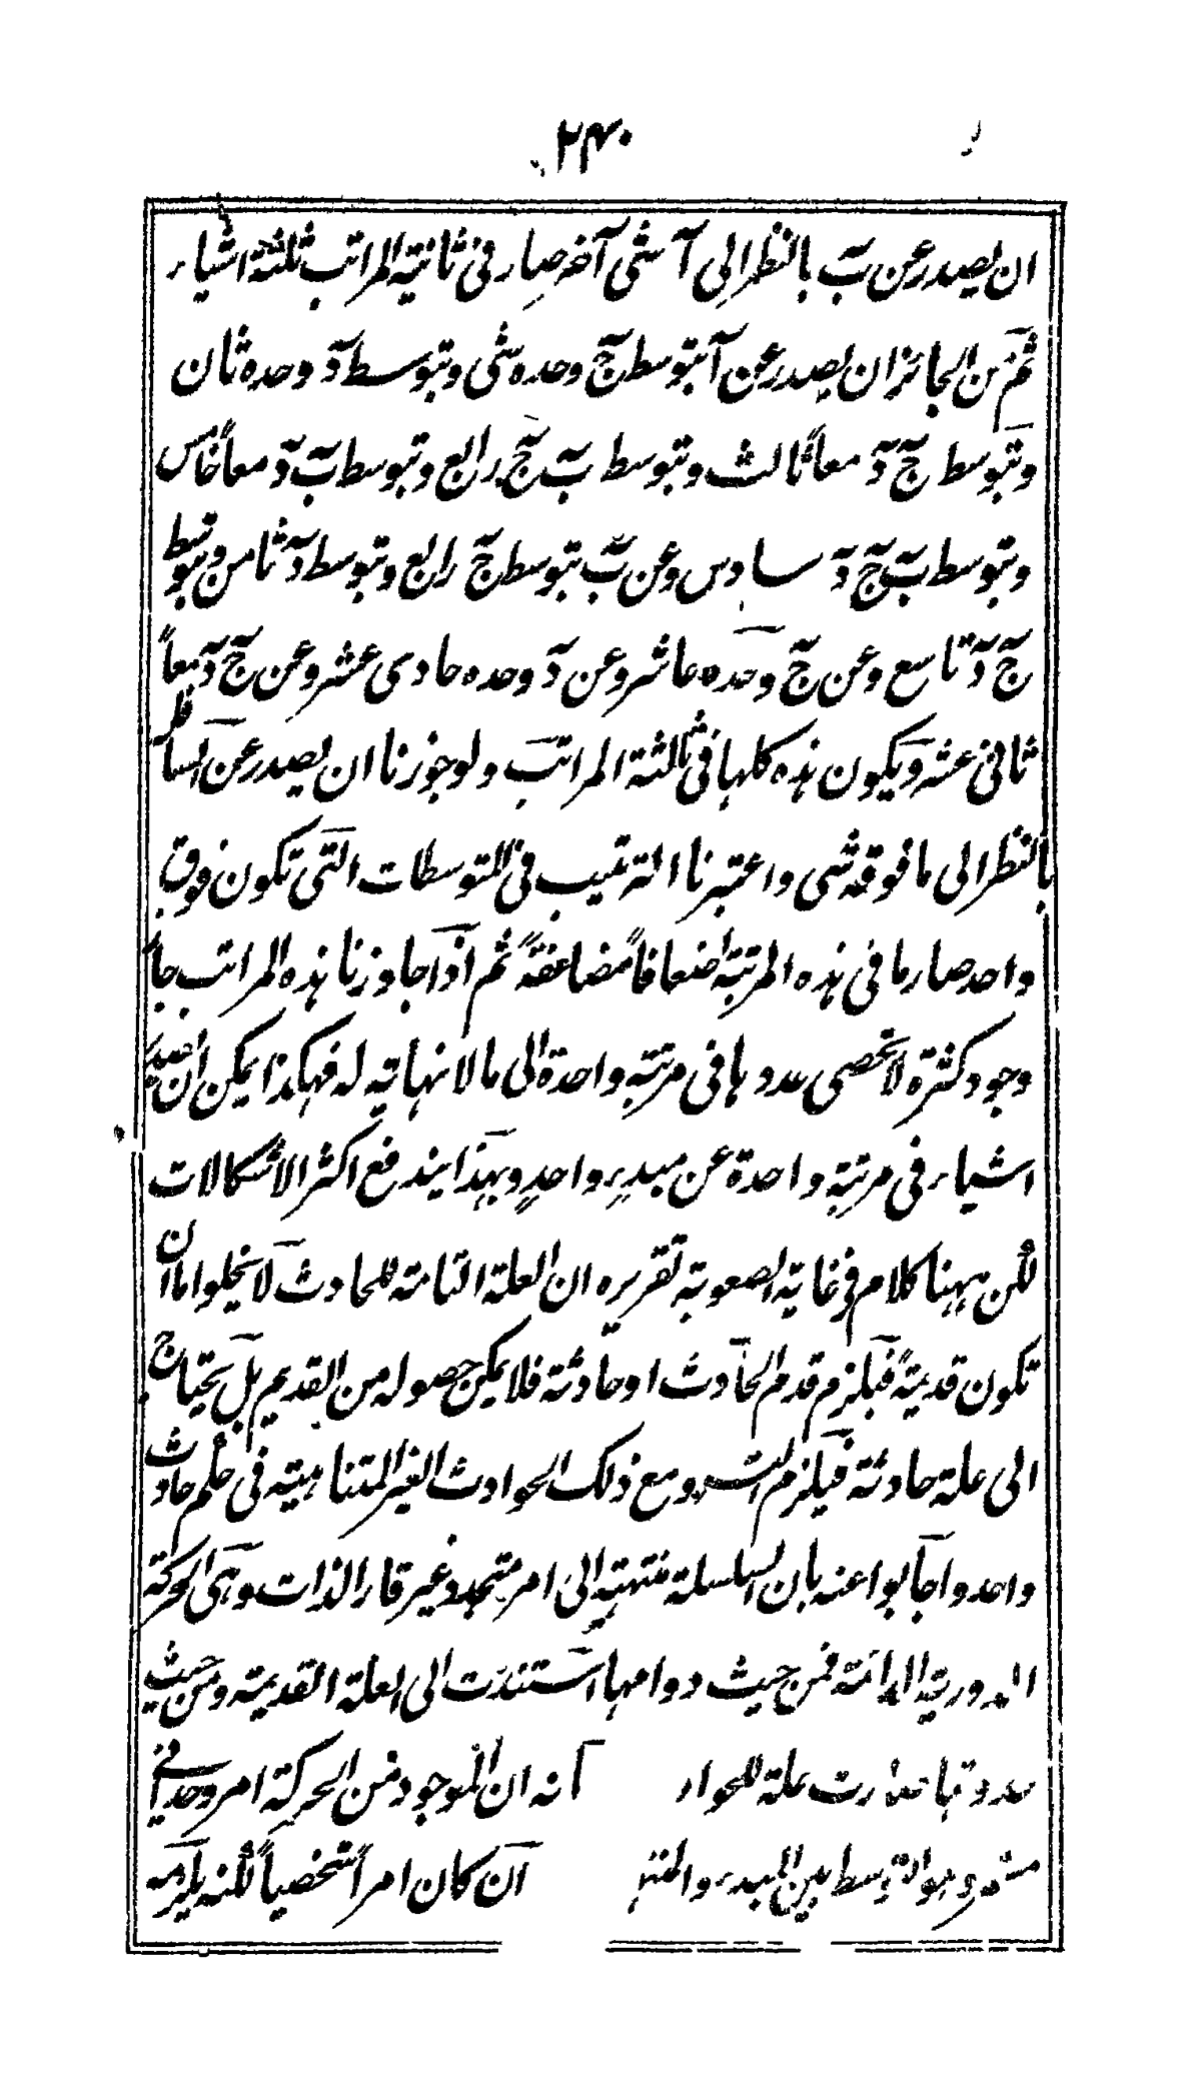 ۲۴۰
ان يصدر عن بَ بالنظر الى آ شئ آخر صار فى ثانية المراتب ثلثة اشياء
ثم من الجائز ان يصدر عن آ بتوسط جَ وحده شئ وبتوسط دَ وحده ثان
وبتوسط جَ دَ معاً ثالث وبتوسط بَ جَ رابع وبتوسط بَ دَ معاً خامس
وبتوسط بَ جَ دَ سادس وعن بَ بتوسط جَ رابع وبتوسط دَ ثامن وبتوسط
جَ دَ تاسع وعن جَ وحده عاشر وعن دَ وحده حادى عشر وعن جَ دَ معاً
ثانى عشر ويكون هذه كلها فى ثالثة المراتب ولو جوزنا ان يصدر عن السافل
بالنظر الى ما فوقه شئ واعتبرنا الترتيب فى المتوسطات التى تكون فوق
واحد صار ما فى هذه المرتبة اضعافاً مضاعفةً ثم اذا جاوزنا هذه المراتب جاز
وجود كثرة لا تحصى عددها فى مرتبة واحدة الى ما لا نهاية له فهكذا يمكن ان يصدر
اشياء فى مرتبة واحدة عن مبدء واحد وبهذا يندفع اكثر الاشكالات
لكن ههنا كلام فى غاية الصعوبة تقريره ان العلة التامة للحادث لا يخلوا ما ان
تكون قديمةً فيلزم قدم الحادث او حادثة فلا يمكن حصوله من القديم بل يحتاج
الى علة حادثة فيلزم التس ومع ذلك الحوادث الغير المتناهية فى حكم حادث
واحد واجابوا عنه بان السلسلة منتهية الى امر متجدد غير قار الذات وهى الحركة
الدورية الدائمة فمن حيث دوامها استندت الى العلة القديمة ومن حيث
حدوثها صارت علة للحواد انه ان الموجود من الحركة امر وحدانى
وهو التوسط بين المبدء والمنتهى ان كان امراً شخصياً لكنه يلزمه